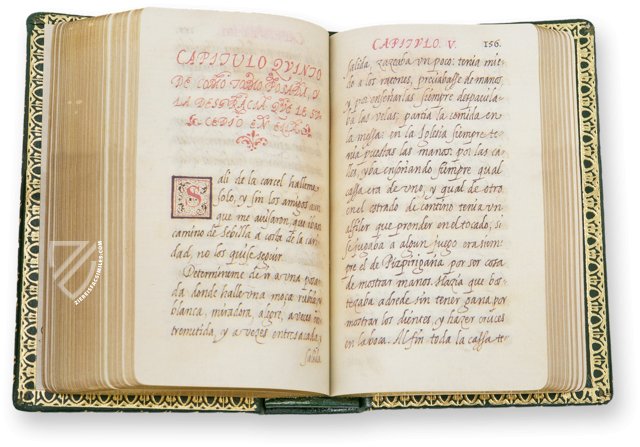 CAPITULO QVINTO
DE COMO TOMO POSADA, Y
LA DESGRACIA QVE LE SU-
CEDIO EN ELLA
Sali de la carcel halleme
solo, y sin los amigos aun
que me auisaron, que iban
camino de Sebilla a costa de la cari
dad, no los quise seguir.
Determineme de ir a una posa
da donde halle una moça rubia, y
blanca, miradora, alegre, a veces en
tremetida, y a vezes entresacada, y
salida.
CAPITVLO V. 156.
salida, zazeaba un poco: tenia mie
do a los ratones, preciabasse de manos
y por enseñarlas siempre despauila-
ba las velas, partia la comida en
la messa: en la Iglesia siempre te-
nia puestas las manos: por las ca-
lles, yba enseñando siempre qual
cassa era de uno, y qual de otro
en el estrado de contino tenia un
alfiler que prender en el tocado; si
se jugaba a algun juego era siem-
pre el de Pizpirigaña, por ser cosa
de mostrar manos. Hazia que bo-
tezaba adrede sin tener gana por
mostrar los dientes, y hazer cruces
en la boca. Al fin toda la cassa te-
ZIEREISFACSIMILES.COM